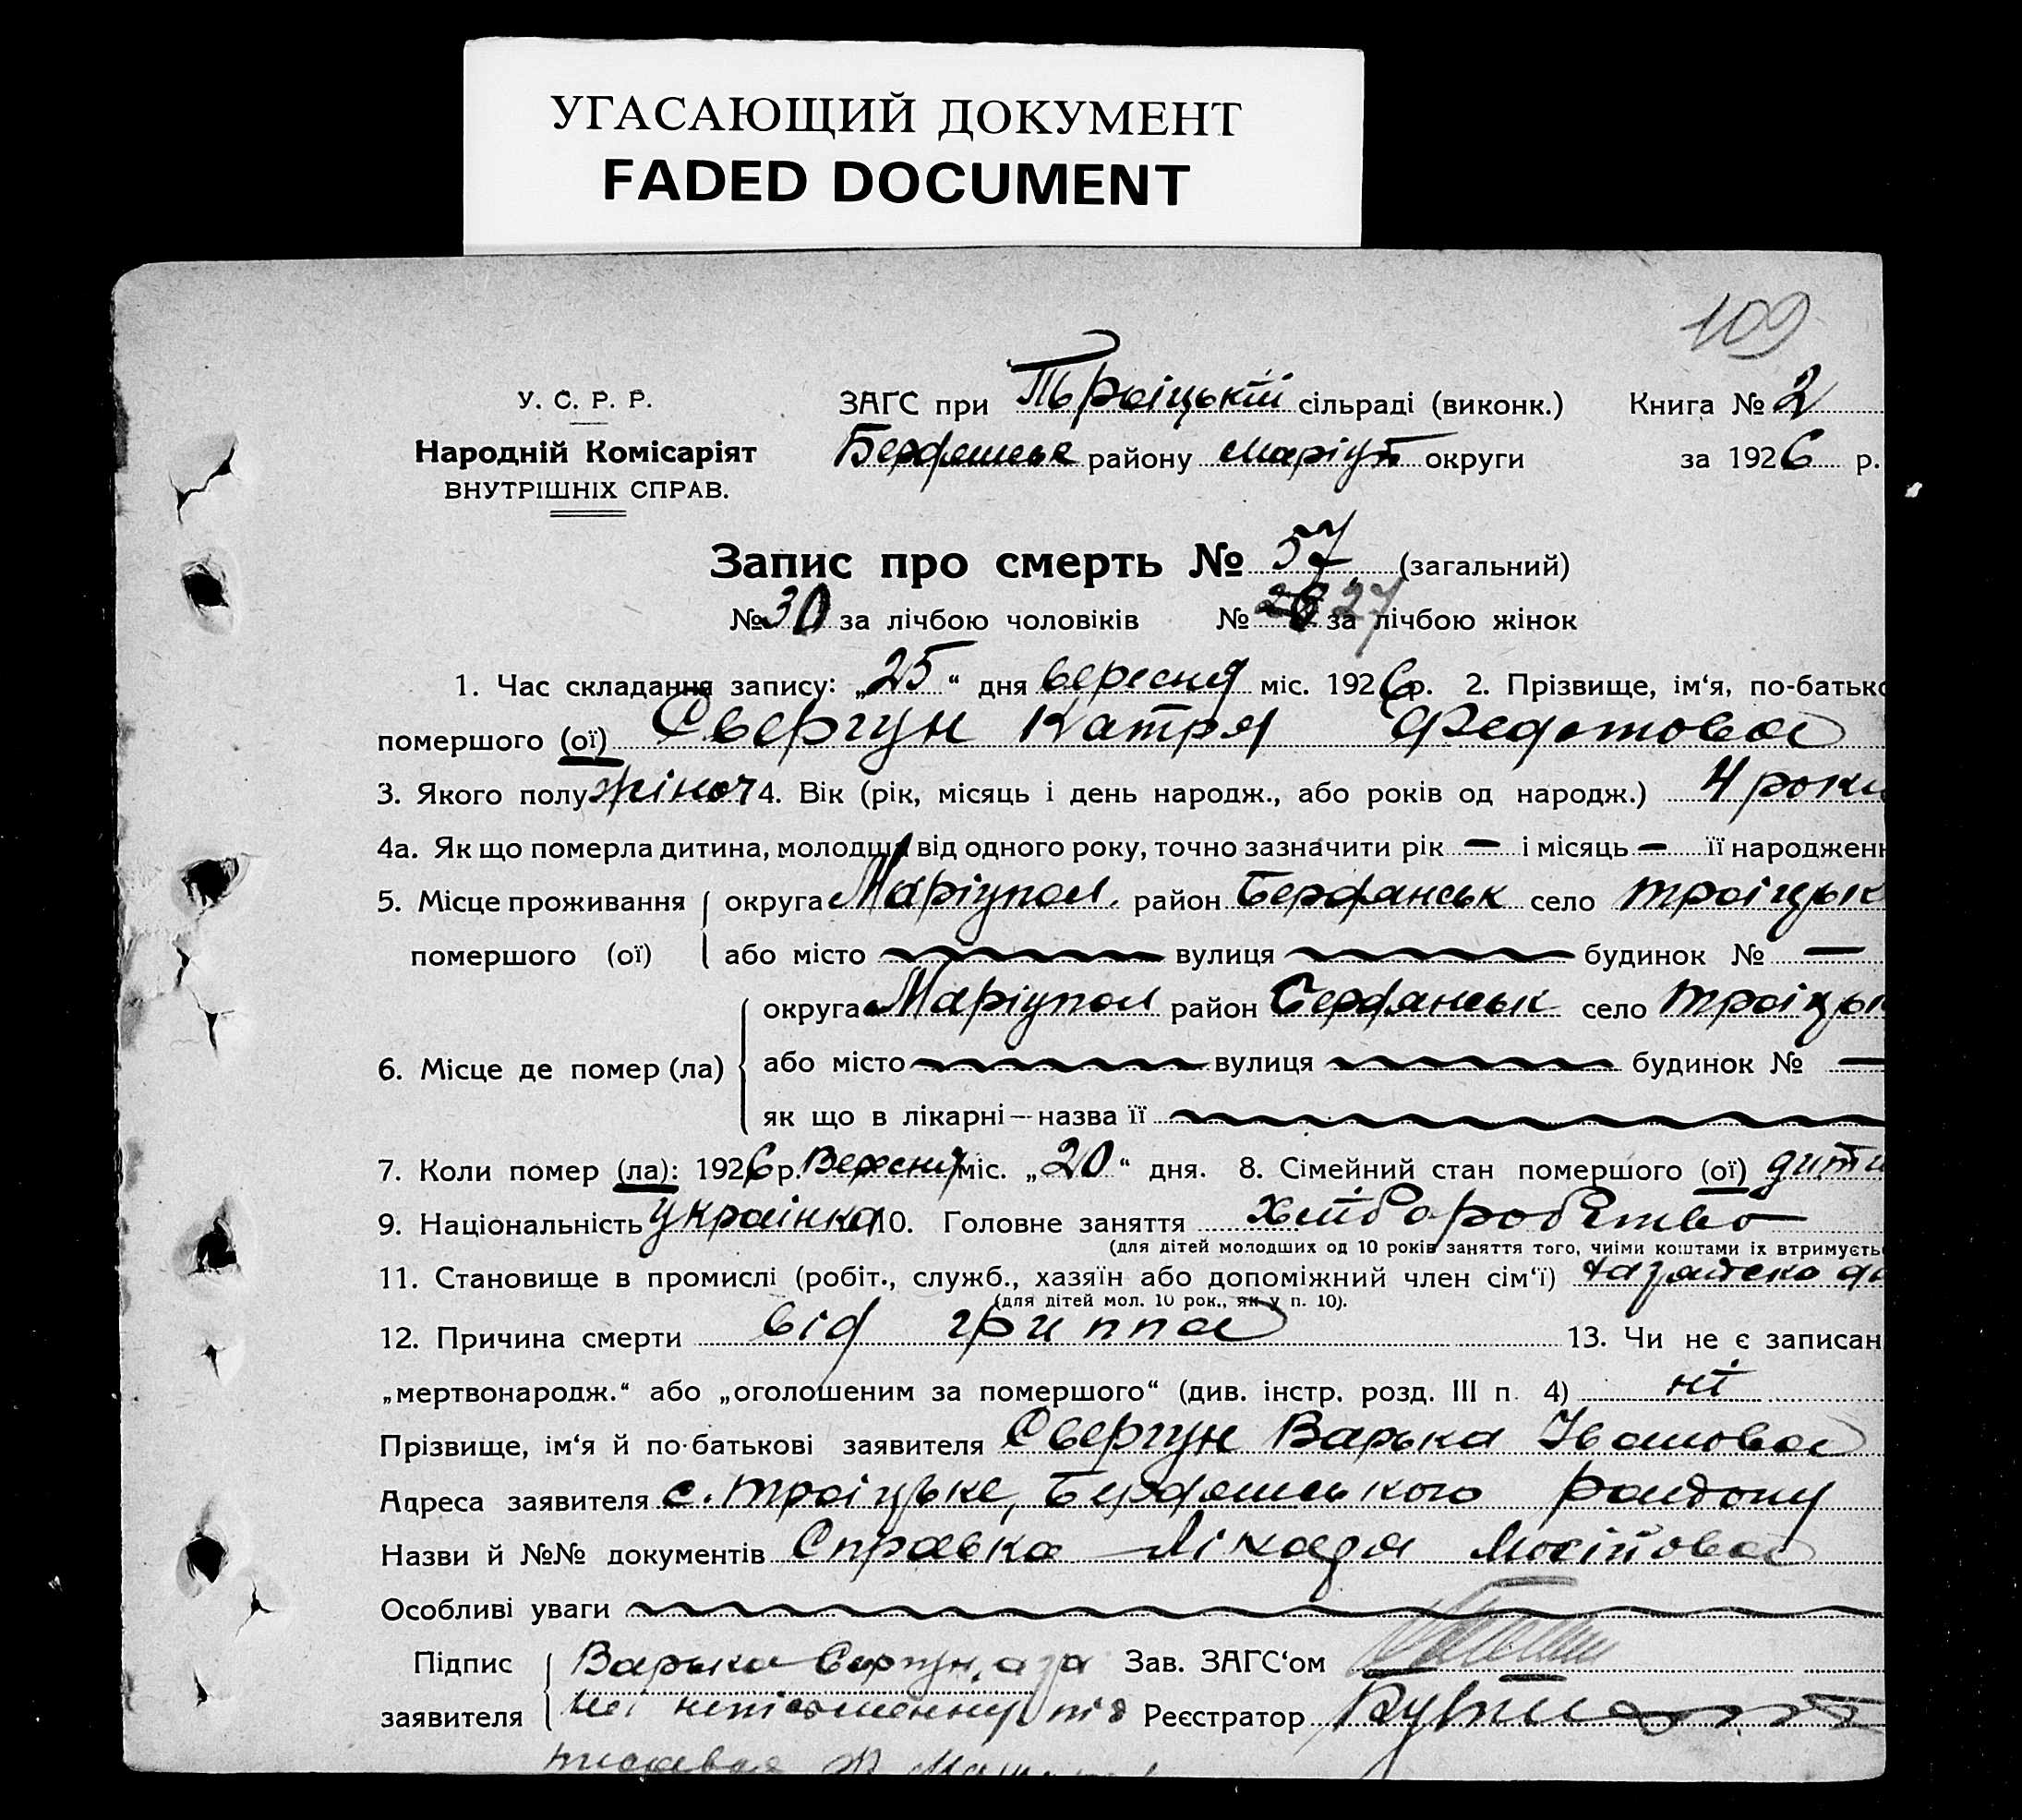 УГАСАЮЩИЙ ДОКУМЕНТ
FADED DOCUMENT
109
У. С. Р. Р.
Народній Комісаріят
ВНУТРІШНІХ СПРАВ.
ЗАГС при Троіцькій сільраді (виконк.) Книга № 2
Бердянське району Маріуп округи за 1926 р.
Запис про смерть № 57 (загальний)
№ 30 за лічбою чоловіків № 27 за лічбою жінок
1. Час складання запису: „25“ дня вересня міс. 1926 р. 2. Прізвище, ім‘я, по-батько
помершого (ої) Свергун Катря Федотовна
3. Якого полу жіноч 4. Вік (рік, місяць і день народж., або років од народж.) 4 роки
4а. Як що померла дитина, молодша від одного року, точно зазначити рік — і місяць — її народжен
5. Місце проживання помершого (ої) округа Маріупол. район Бердянськ село Троіцьк
або місто вулиця будинок № —
6. Місце де помер (ла) округа Маріупол район Бердянськ село Троіцьк
або місто вулиця будинок № —
як що в лікарні — назва її
7. Коли помер (ла): 1926 р. Вересня міс. „20“ дня. 8. Сімейний стан помершого (ої) дити
9. Національність українка 10. Головне заняття хліборобство
(для дітей молодших од 10 років заняття того, чиїми коштами їх втримуєть
11. Становище в промислі (робіт., служб., хазяїн або допоміжний член сім‘ї)
(для дітей мол. 10 рок., як у п. 10).
12. Причина смерти від гриппа 13. Чи не є записан
„мертвонародж.“ або „оголошеним за помершого“ (див. інстр. розд. III п. 4) ні
Прізвище, ім‘я й по-батькові заявителя Свергун Варька Івановна
Адреса заявителя с. Троіцьке, Бердянського району
Назви й №№ документів Справка Лікаря
Особливі уваги
Підпис заявителя Варька Свергун, а за
неї неписьменну під
Зав. ЗАГС‘ом
Реєстратор